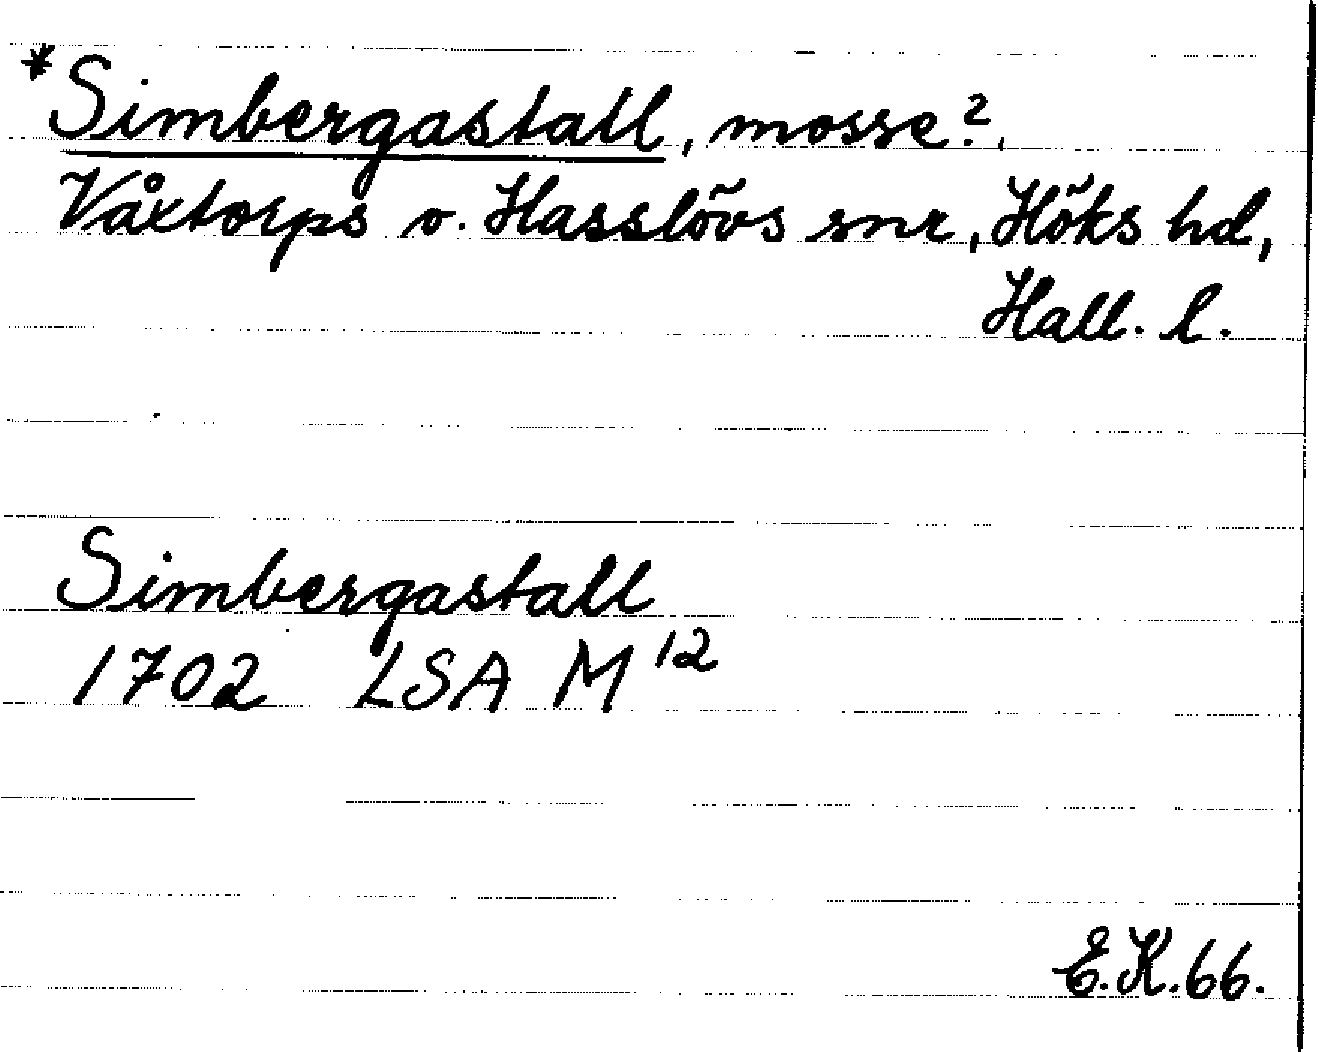 *Simbergastall, mosse?,
Våxtorps o. Hasslövs snr, Höks hd,
Hall. l.
Simbergastall
1702 LSA M 12
E.K.66.